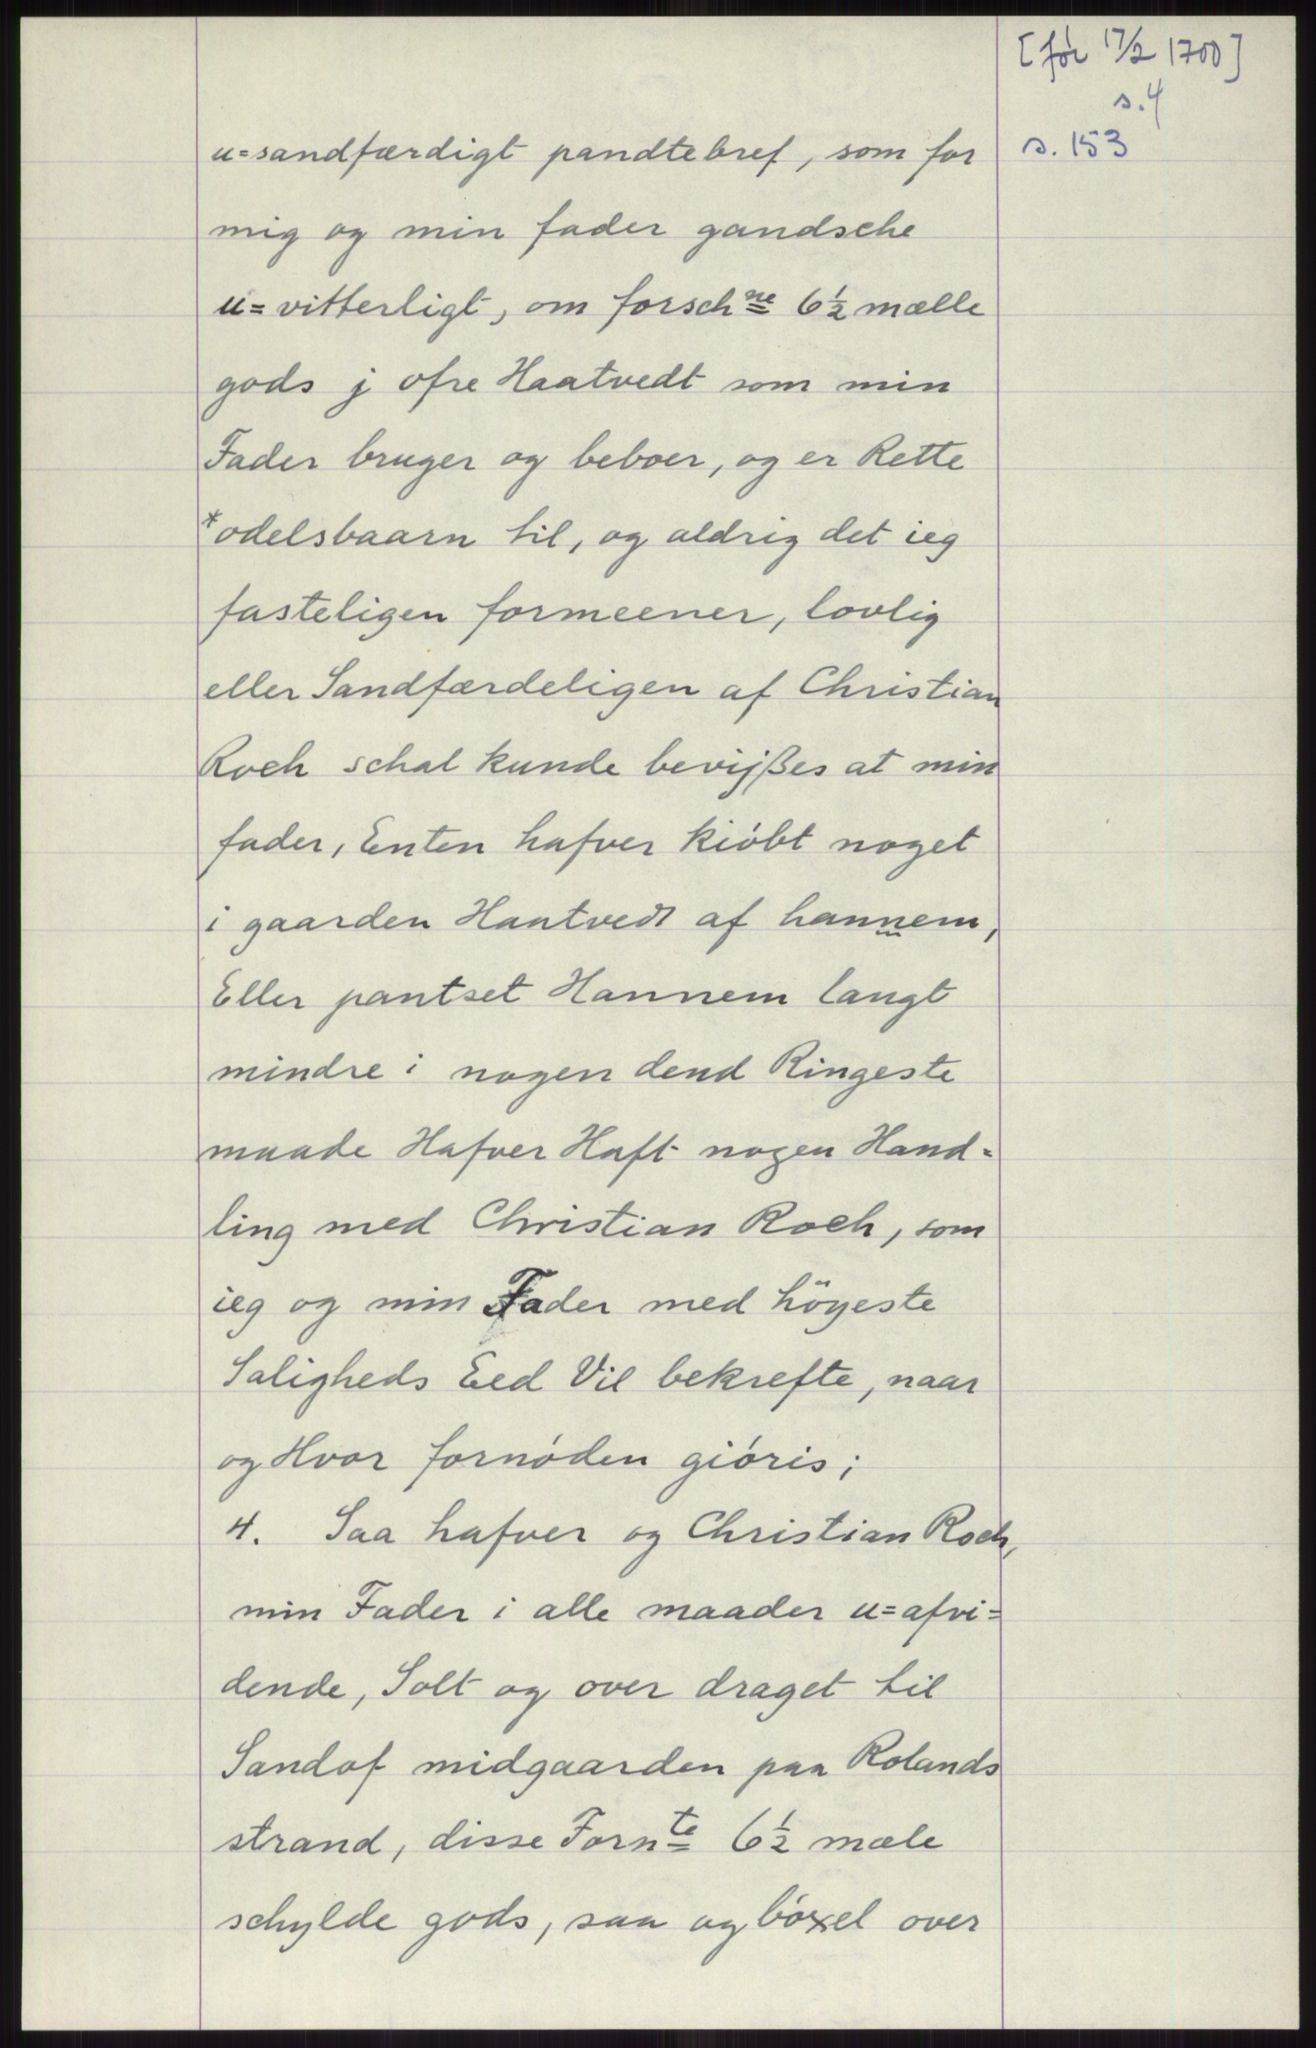 [før 17/2 1700]
s. 4
s. 153
u=sandfærdigt pandtebref, som for
mig og min fader gandsche
u=vitterligt, om forsch<sup>ne</sup> 6½ mælle
gods j ofre Haatvedt som min
Fader bruger og beboer, og er Rette
*odelsbaarn til, og aldrig det ieg
fasteligen formeener, lovlig
eller Sandfærdeligen af Christian
Roch schal kunde bevijßes at min
fader, Enten hafver kióbt noget
i gaarden Haatvedt af hannem,
Eller pantset Hannem langt
mindre i nogen dend Ringeste
maade Hafver Haft nogen Hand-
ling med Christian Roch, som
ieg og min Fader med höyeste
Saligheds Eed Vil bekrefte, naar
og Hvor fornóden gióris;
4. Saa hafver og Christian Roch,
min Fader i alle maader u=afvi=
dende, Solt og over draget til
Sandof midgaarden paa Rolands
strand, disse Forn<sup>te</sup> 6½ mæle
schylde gods, saa og bóxel over